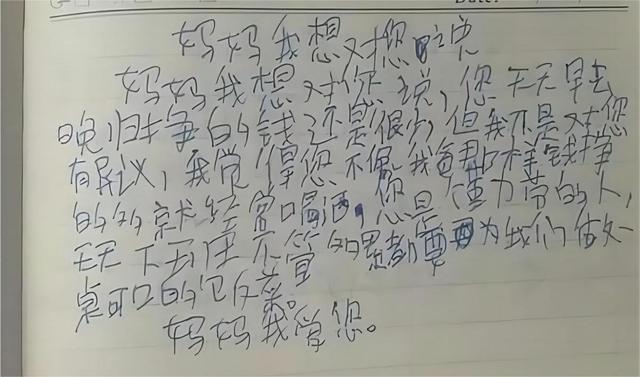 Date:
妈妈我想对您说
妈妈我想对您说,您天天早去
晚归争的钱还是很少,但我不是对您
有异议,我觉得您不像我爸那样钱挣
的多就经常喝酒,您是懂力劳的人,
天天下五庄不管如累都要为我们做一
桌可口的饭菜。
妈妈我爱您。